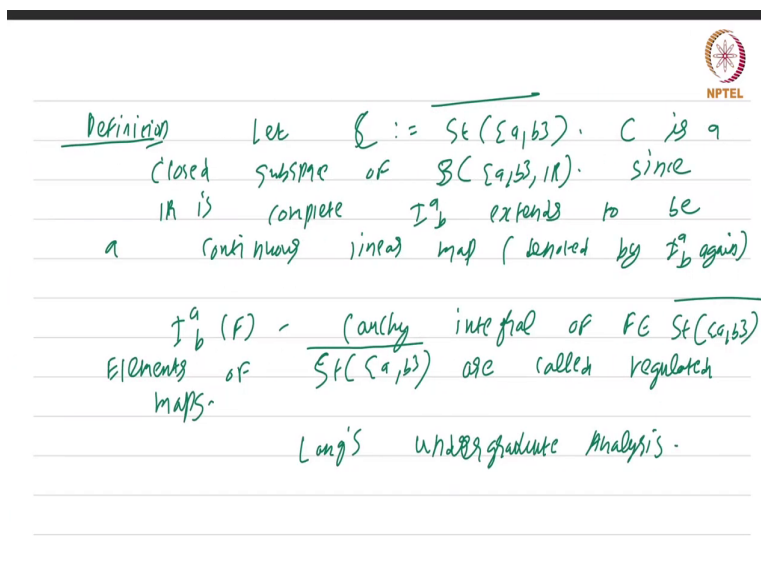 NPTEL
Definition Let ℰ := \overline{St([a,b])}. C is a
closed subspace of B([a,b], IR). since
IR is complete I^a_b extends to be
a continuous linear map (denoted by I^a_b again)
I^a_b (F) - Cauchy integral of F ∈ \overline{St([a,b])}
Elements of \overline{St([a,b])} are called regulated
maps.
Lang's undergraduate Analysis.